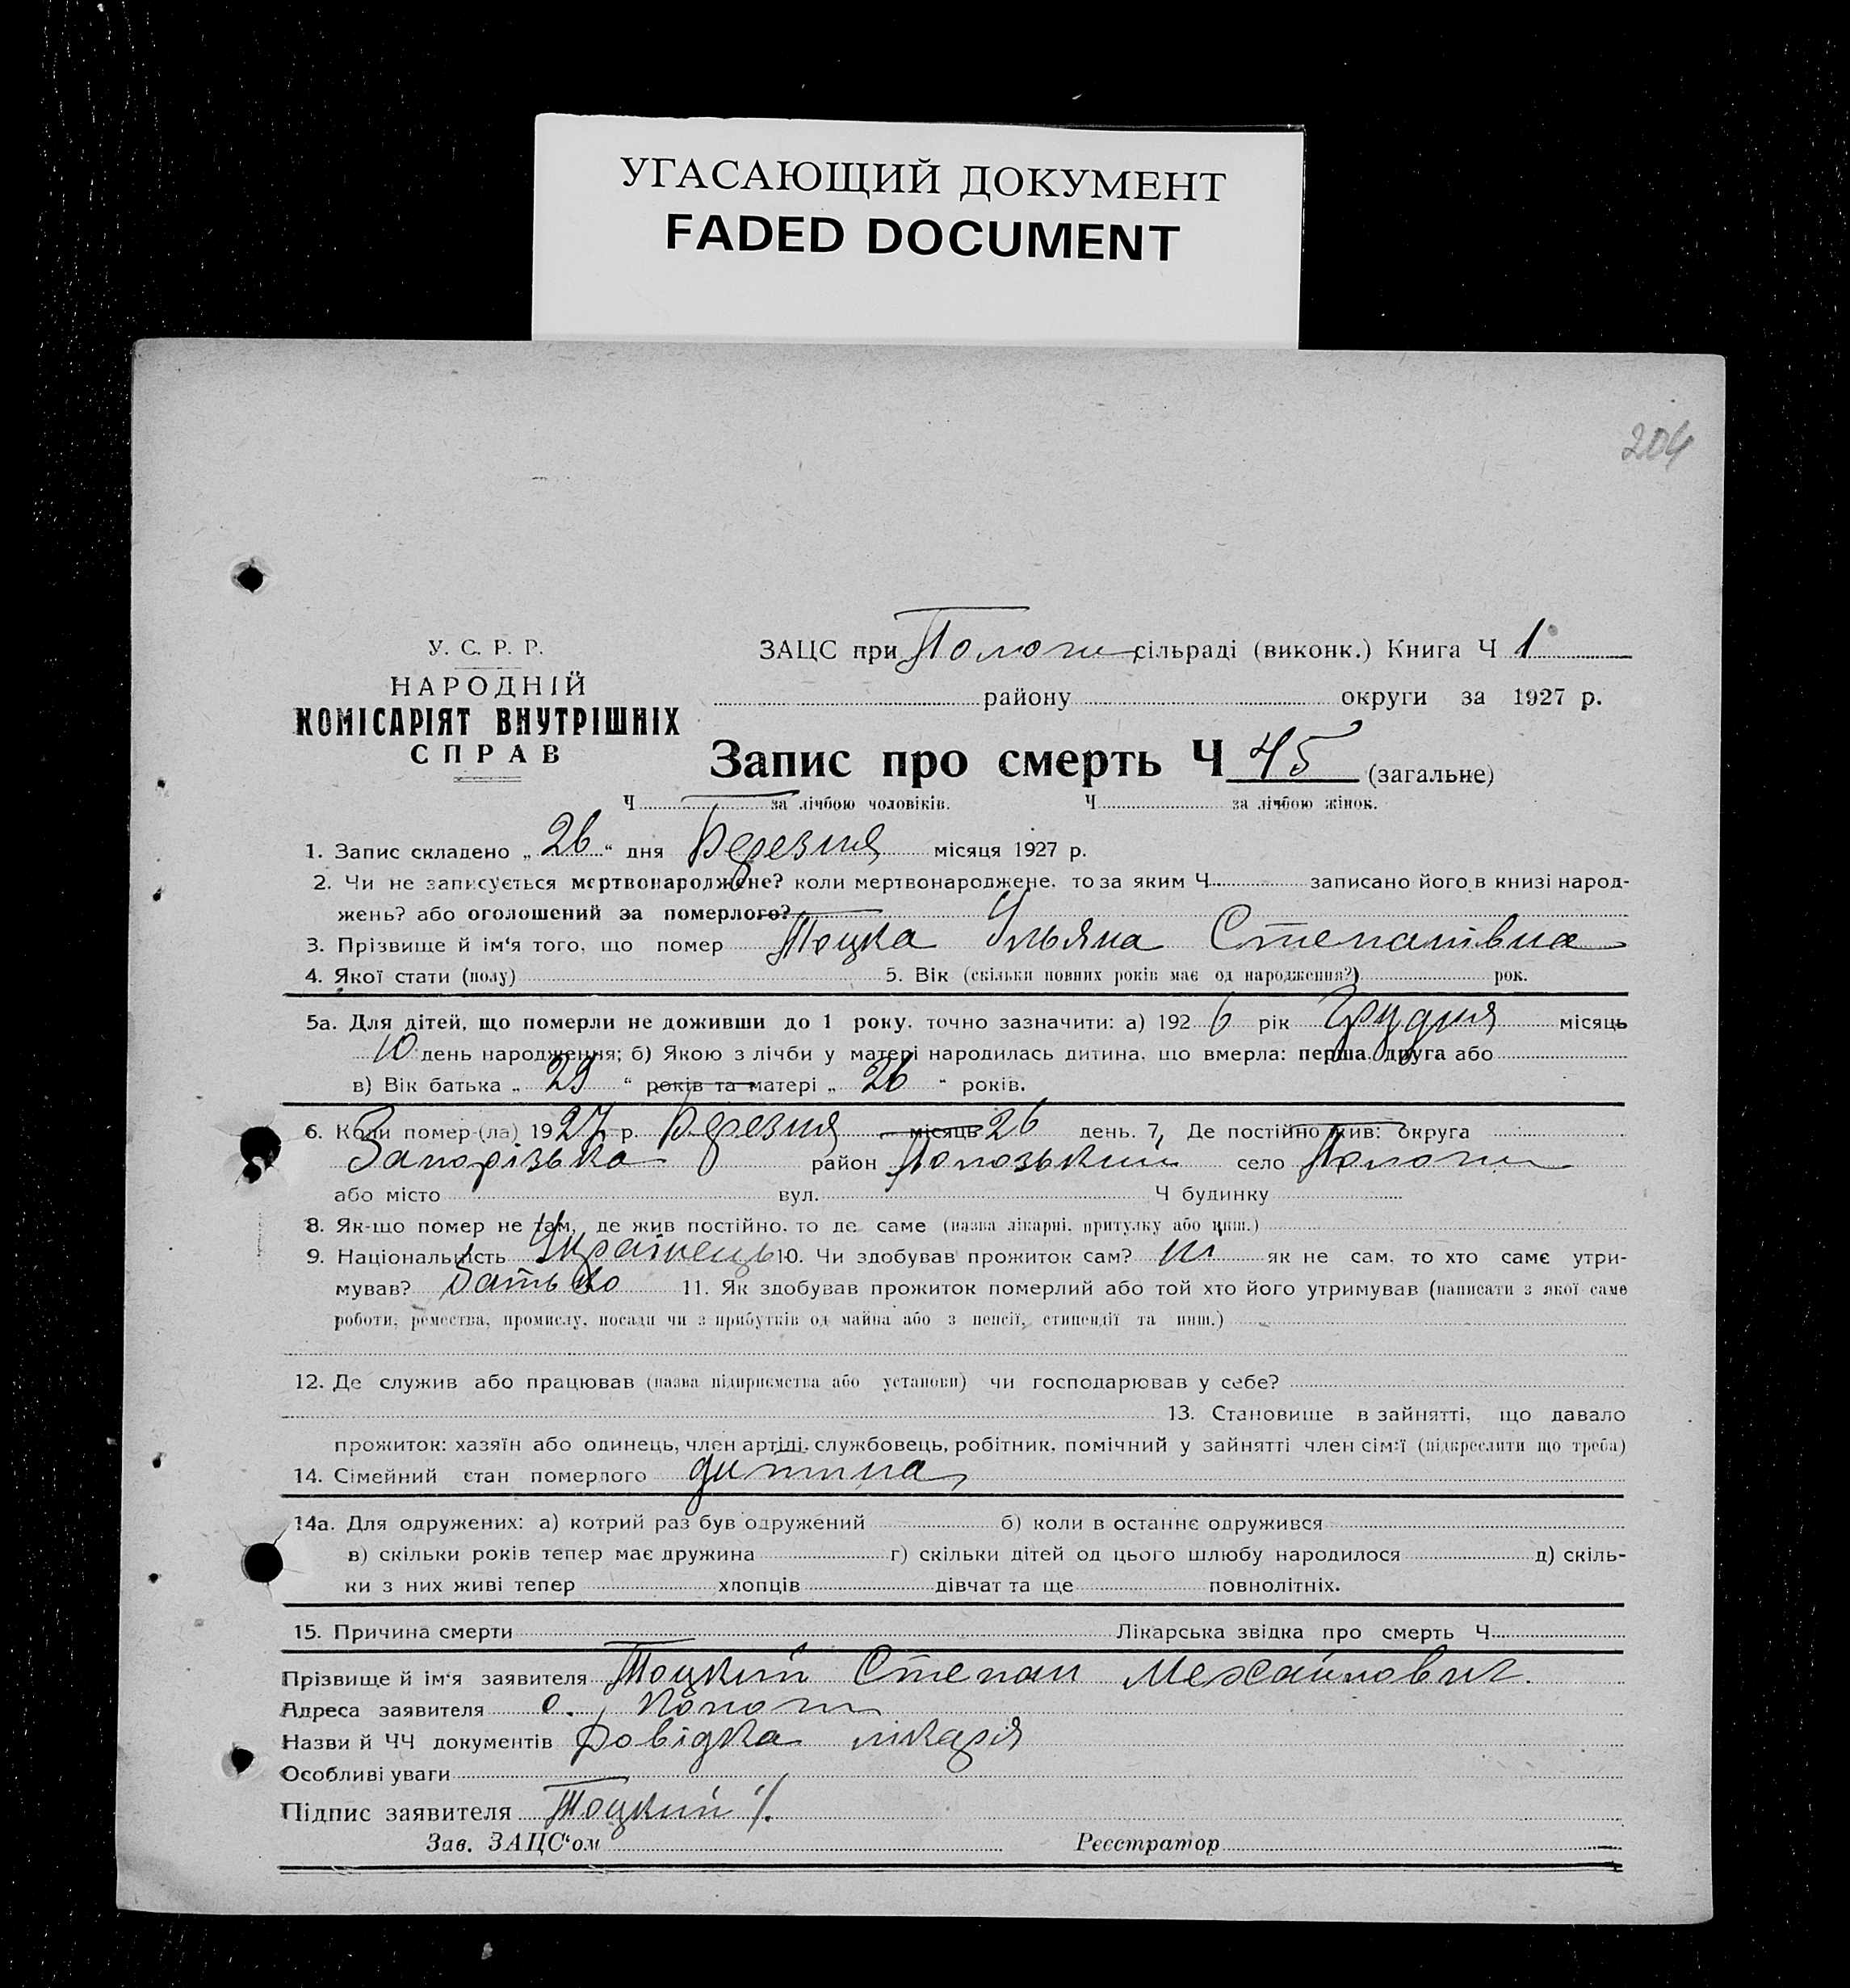 УГАСАЮЩИЙ ДОКУМЕНТ
FADED DOCUMENT
204
У. С. Р. Р.
НАРОДНІЙ
КОМІСАРІЯТ ВНУТРІШНІХ
СПРАВ
ЗАЦС при Пологи сільраді (виконк.) Книга Ч 1
району округи за 1927 р.
Запис про смерть Ч 45 (загальне)
Ч за лічбою чоловіків. Ч за лічбою жінок.
1. Запис складено „ 26 “ дня Березня місяця 1927 р.
2. Чи не записується мертвонароджене? коли мертвонароджене, то за яким Ч записано його в книзі народ-
жень? або оголошений за померлого?
3. Прізвище й ім‘я того, що помер Тоцка Ульяна Степанівна
4. Якої стати (полу) 5. Вік (скільки повних років має од народження?) рок.
5а. Для дітей, що померли не доживши до 1 року, точно зазначити: а) 192 6 рік Грудня місяць
10 день народження; б) Якою з лічби у матері народилась дитина, що вмерла: перша, друга або
в) Вік батька „ 29 “ років та матері „ 26 “ років.
6. Коли помер-(ла) 1927 р. Березня місяць 26 день. 7, Де постійно жив: округа
Запорізька район Пологзький село Пологи
або місто вул. Ч будинку
8. Як-що помер не там, де жив постійно, то де саме (назва лікарні, притулку або инш.)
9. Національність Українець 10. Чи здобував прожиток сам? ні як не сам, то хто саме утри-
мував? батько 11. Як здобував прожиток померлий або той хто його утримував (написати з якої саме
роботи, ремества, промислу, посади чи з прибутків од майна або з пенсії, стипендії та инш.)
12. Де служив або працював (назва підприємства або установи) чи господарював у себе?
13. Становище в зайнятті, що давало
прожиток: хазяїн або одинець, член артілі, службовець, робітник, помічний у зайнятті член сім‘ї (підкреслити що треба)
14. Сімейний стан померлого дитина
14а. Для одружених: а) котрий раз був одружений б) коли в останнє одружився
в) скільки років тепер має дружина г) скільки дітей од цього шлюбу народилося д) скіль-
ки з них живі тепер хлопців дівчат та ще повнолітніх.
15. Причина смерти Лікарська звідка про смерть Ч
Прізвище й ім‘я заявителя Тоцкий Степан Михайлович.
Адреса заявителя с. Пологи
Назви й ЧЧ документів Довідка лікаря
Особливі уваги
Підпис заявителя Тоцкий
Зав. ЗАЦС‘ом Реєстратор